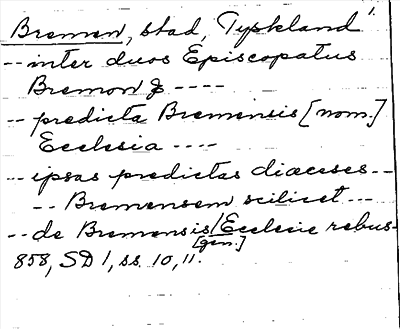 Bremen, stad, Tyskland 1.
-- inter duos Episcopatus
Bremon & ----
-- predicta Bremensis [nom.]
Ecclesia ----
-- ipsas predictas diœceses --
-- Bremensem scilicet ---
-- de Bremensis/Ecclesie rebus-
[gen.]
858, SD 1, ss. 10, 11.